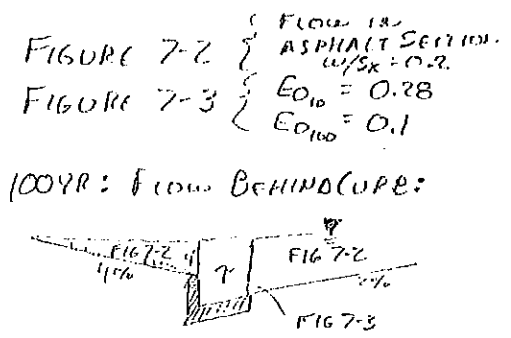 FLOW IN
FIGURE 7-2 { ASPHALT SECTION.
W/SX =
FIGURE 7-3 { EO10 = 0.28
EO100 = 0.1
100YR: FLOW BEHIND CURB:
FIG 7-2
4%
FIG 7-2
2%
FIG 7-3